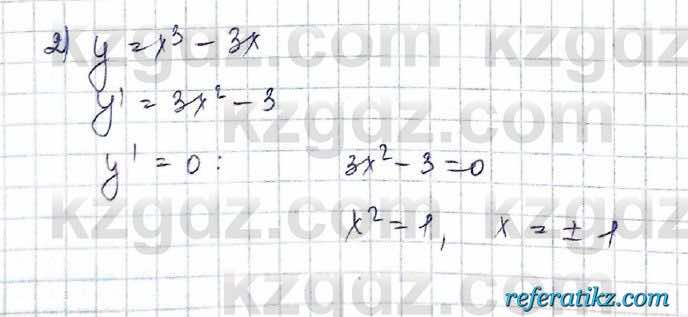 2) y = x³ - 3x
y' = 3x² - 3
y' = 0 : 3x² - 3 = 0
x² = 1, x = ± 1
kzgdz.com
kzgdz.com
kzgdz.com
kzgdz.com
referatikz.com